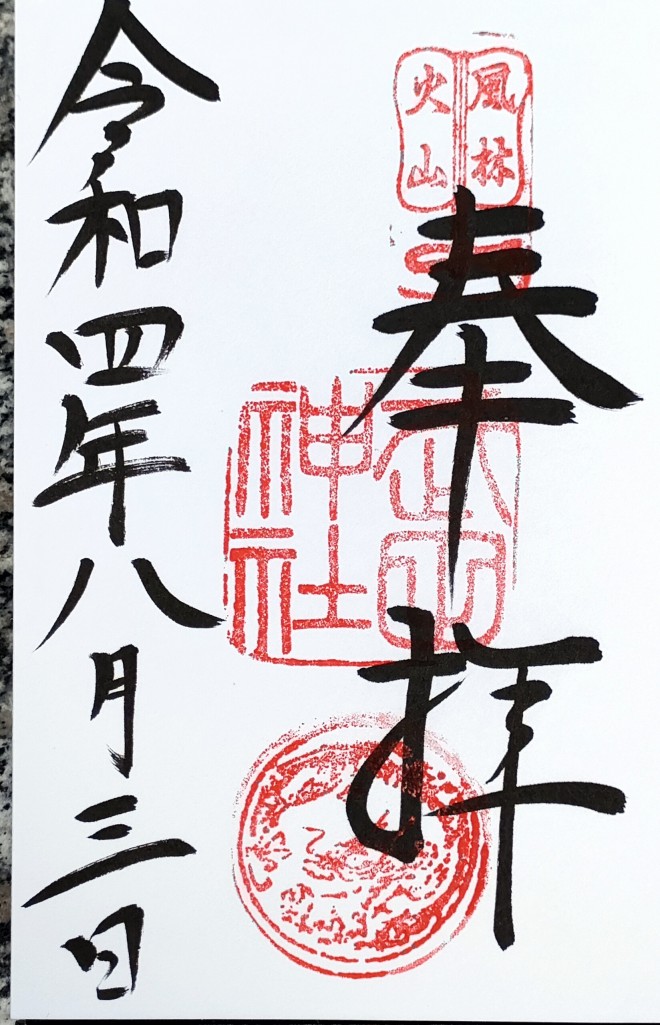 風林
火山
奉拝
武田
神社
令和四年八月三日